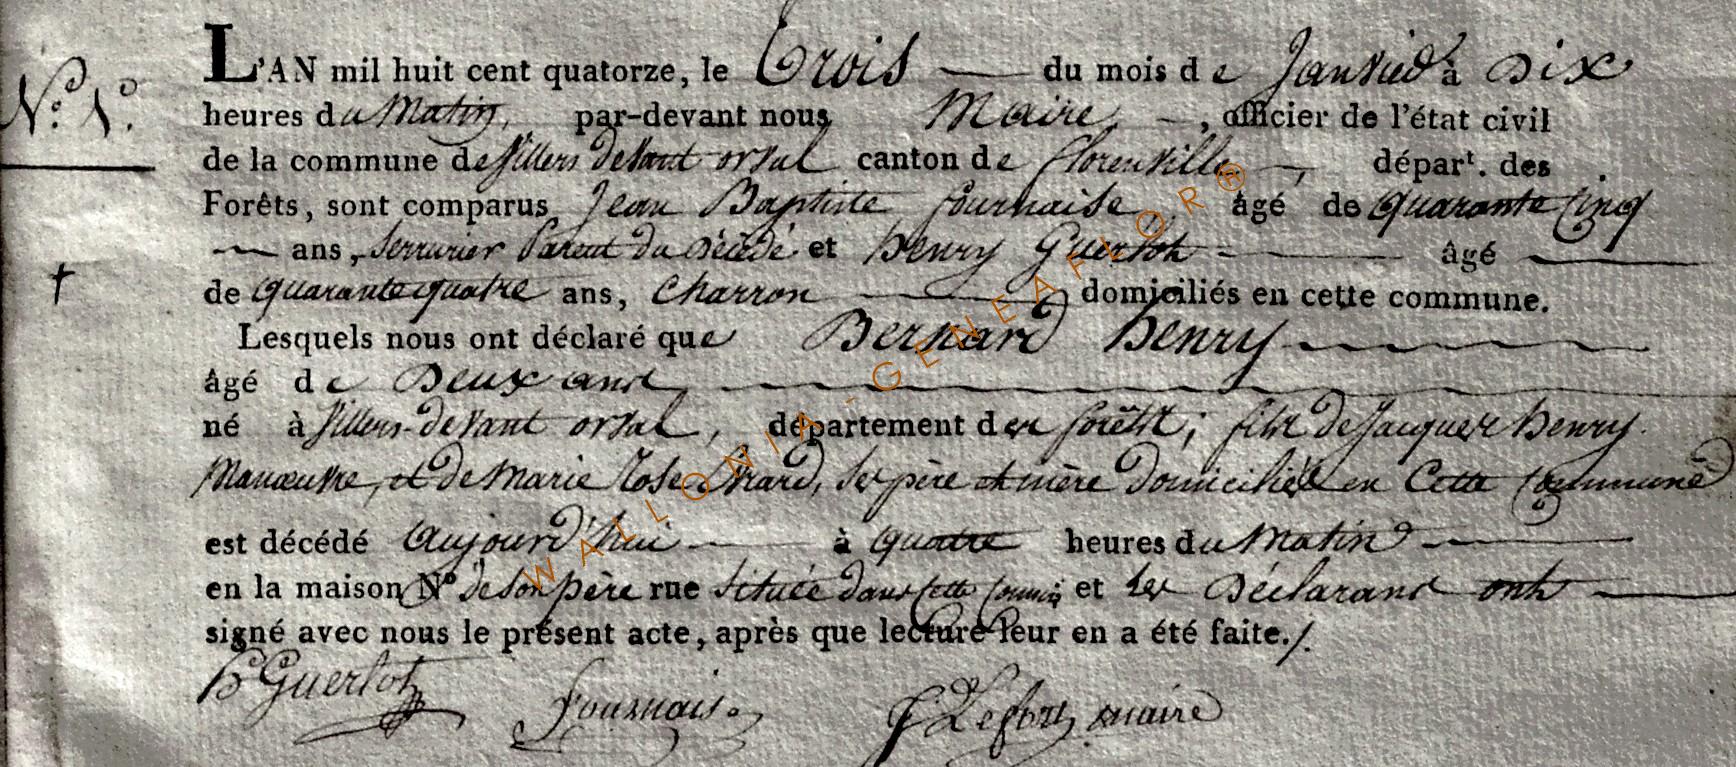 N.° 1.°
L'AN mil huit cent quatorze, le Trois du mois de Janvier à Dix
heures du Matin, par-devant nous Maire, officier de l'état civil
de la commune de Villers devant orval canton de florenville, départ. des
Forêts, sont comparus Jean Baptiste fournaise, âgé de quarante Cinq
ans, Serrurier Parent du Décédé et henry Guerlot âgé
de quarante quatre ans, Charron domiciliés en cette commune.
Lesquels nous ont déclaré que Bernard henry
âgé de Deux ans
né à Villers-devant orval, département des forêts; fils de Jacques henry
Manœuvre, et de Marie Rose, Ses père et mère Domiciliés en Cette Commune
est décédé aujourd'hui à quatre heures du Matin
en la maison N° de Son père rue Située dans Cette et Les Déclarans ont
signé avec nous le présent acte, après que lecture leur en a été faite./.
h Guerlot fournaise J Lefort maire
WALLONIA-GENEAFLOR®